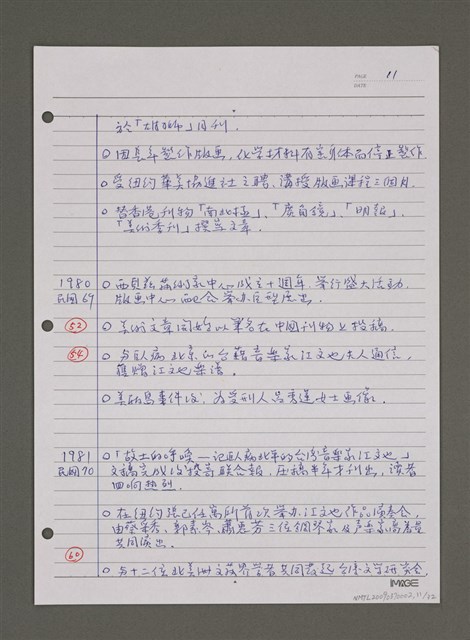 PAGE 11
DATE
於「雄獅」月刊.
○因長年製作版畫,化學材料有害身体而停止製作
○受紐約華美協進社之聘,講授版畫課程三個月.
○替香港刊物「南北極」、「廣角鏡」、「明報」、
「美術季刊」撰並文章.
1980 ○西貝藝術家中心成立十週年,舉行盛大活動.
民國69 版画中心配合舉办展出.
52 ○美術文章開始以筆名在中國刊物上投稿.
54 ○与臥病北京的台籍音樂家江文也夫人通信,
獲贈江文也樂譜.
○美麗島事件後,為受刑人呂秀蓮女士画像.
1981 ○「故土的呼喚—記臥病北平的台灣音樂家江文也」
民國70 文稿完成後投寄聯合報,压稿半年才刊出,讀者
回响热烈.
○在紐約現已住寓所首次举办江文也作品演奏会,
由蔡采秀、郭素芩、蕭惠芳三位鋼琴家及声樂家
共同演出.
60
○与十二位北美洲文藝界学者共同發起台湾文学研究会.
IMAGE
NMTL20090370002.11/22